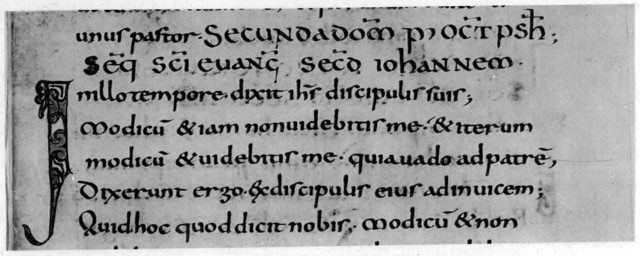 unus pastor. SECUNDA DOM̄ P' OCT̄ PSH̄;
SEQ̄ SC̄I EVANḠ SECD̄ IOHANNEM.
In illo tempore. dixit ih̄s discipulis suis;
Modicū & iam non videbitis me. & iterum
modicū & videbitis me. quia vado ad patrē,
Dixerunt ergo. Ex discipulis eius adinuicem;
Quid hoc quod dicit nobis;. Modicū & non